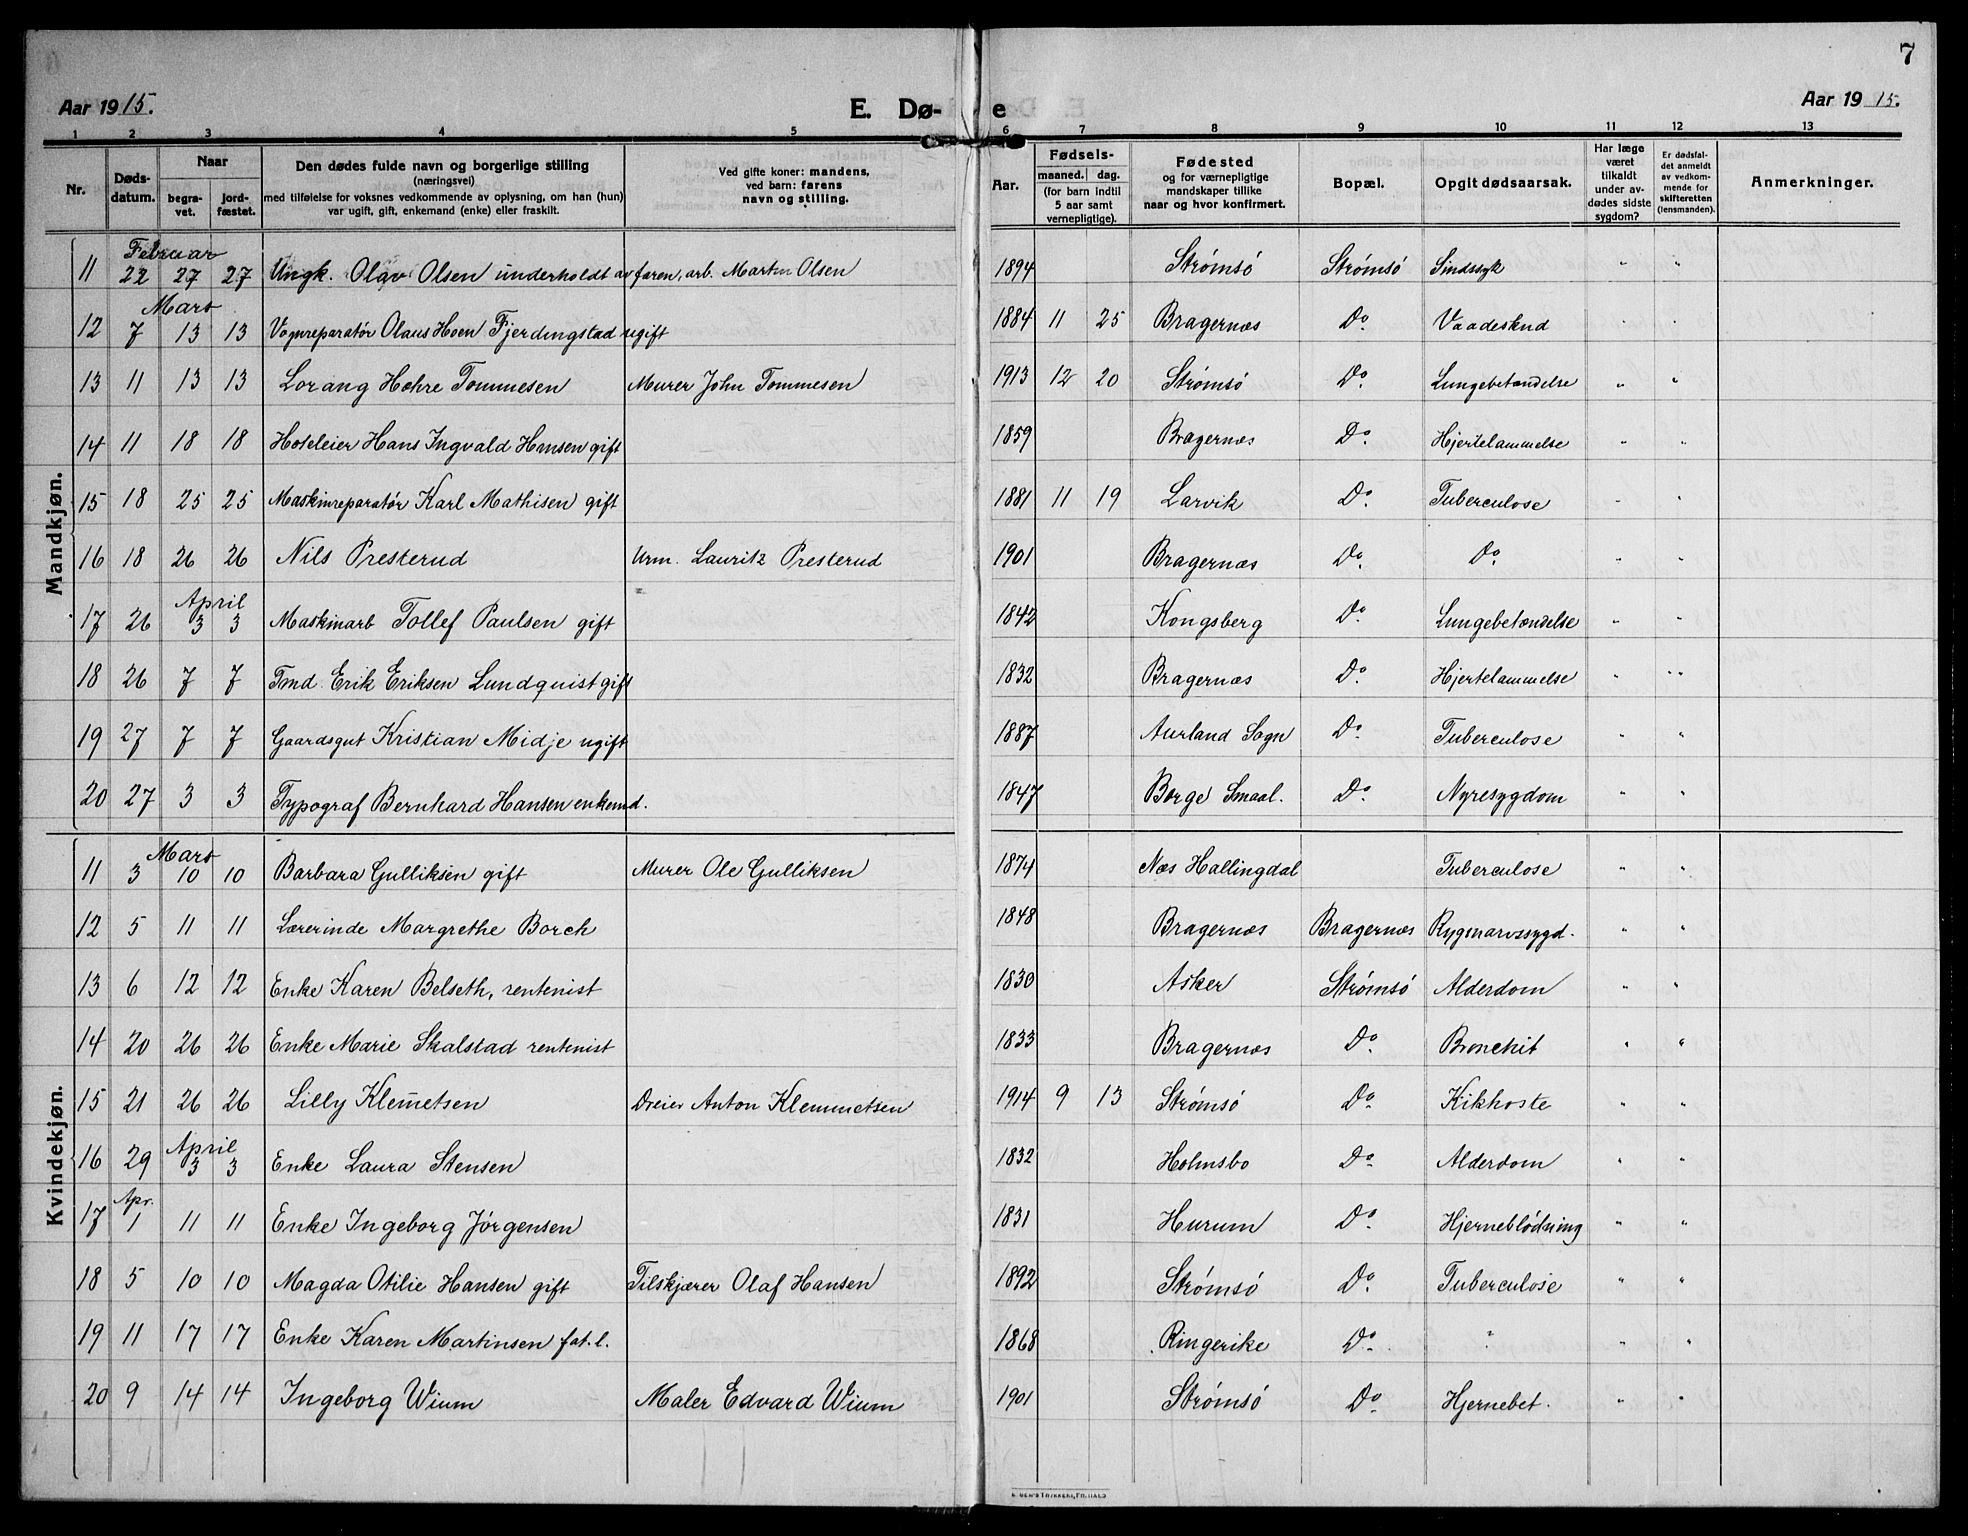 7
Aar 1915. E. Dø- e Aar 1915.
1 2 3 4 5 6 7 8 9 10 11 12 13
Nr. Dødsdatum. Naar begravet. jordfæstet. Den dødes fulde navn og borgerlige stilling (næringsvei) med tilføielse for voksnes vedkommende av oplysning, om han (hun) var ugift, gift, enkemand (enke) eller fraskilt. Ved gifte koner: mandens, ved barn: farens navn og stilling. Aar. Fødsels- maaned. dag. (for barn indtil 5 aar samt vernepligtige). Fødested og for værnepligtige mandskaper tillike naar og hvor konfirmert. Bopæl. Opgit dødsaarsak. Har læge været tilkaldt under avdødes sidste sygdom? Er dødsfaldet anmeldt av vedkommende for skifteretten (lensmanden). Anmerkninger.
Mandkjøn.
Februar
11 22 27 27 Ungk. Olav Olsen underholdt av faren, arb. Martin Olsen 1894 Strømsö Strømsö Sindssyk " "
Mars
12 7 13 13 Vognreparatör Olaus Hoen Fjerdingstad ugift 1884 11 25 Bragernæs Do. Vaadeskud " "
13 11 13 13 Lorang Hohre Tommesen Murer John Tommesen 1913 12 20 Strømsö Do. Lungebetændelse " "
14 11 18 18 Hans Ingvald gift 1859 Bragernæs Do. Hjertelammelse " "
15 18 25 25 Maskinreparatör Karl Mathisen gift 1881 11 19 Larvik Do. Tuberculose " "
16 18 26 26 Nils Presterud Urm. Lauritz Presterud 1901 Bragernæs Do. Do. " "
April
17 26 3 3 Maskinarb Tollef Paulsen gift 1842 Kongsberg Do. Lungebetændelse " "
18 26 7 7 Tmd. Erik Eriksen Lundquist gift 1832 Bragernæs Do. Hjertelammelse " "
19 27 7 7 Gaardsgut Kristian Midje ugift 1887 Aurland Sogn Do. Tuberculose " "
20 27 3 3 Typograf Bernhard Hansen enkemd. 1847 Borge Smaal. Do. Nyresygdom " "
Kvindekjøn.
Mars
11 3 10 10 Barbara Gulliksen gift Murer Ole Gulliksen 1874 Næs Hallingdal Tuberculose " "
12 5 11 11 Lærerinde Margrethe Borch 1848 Bragernæs Bragernæs Rygmarvssygd. " "
13 6 12 12 Enke Karen Belseth, rentenist 1830 Asker Strømsö Alderdom " "
14 20 26 26 Enke Marie Skalstad rentenist 1833 Bragernæs Do. Bronchit " "
15 21 26 26 Lilly Klem̅etsen Dreier Anton Klemmetsen 1914 9 13 Strømsö Do. Kikhoste " "
April
16 29 3 3 Enke Laura Stensen 1832 Holmsbo Do. Alderdom " "
Apr.
17 1 11 11 Enke Ingeborg Jörgensen 1831 Hurum Do. Hjerneblödning " "
18 5 10 10 Magda Otilie Hansen gift Tilskjærer Olaf Hansen 1892 Strømsö Do. Tuberculose " "
19 11 17 17 Enke Karen Martinsen fat.l. 1868 Ringerike Do. " " "
20 9 14 14 Ingeborg Wium Maler Edvard Wium 1901 Strømsö Do. Hjernebet. " "